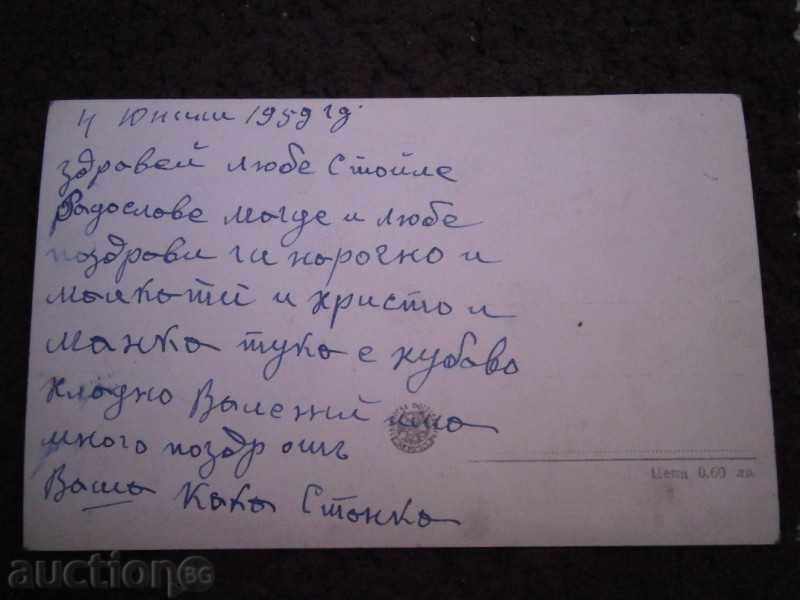 4 Юниии 1959 гд.
здравей любе Стойле
Радославе магде и любе
поздрави ги нарочно и
майкати и христо и
манка тука е хубаво
хладно Валежи има
много поздр отъ
Ваша Кака Станка
Цена 0.60 лв.
auction BG